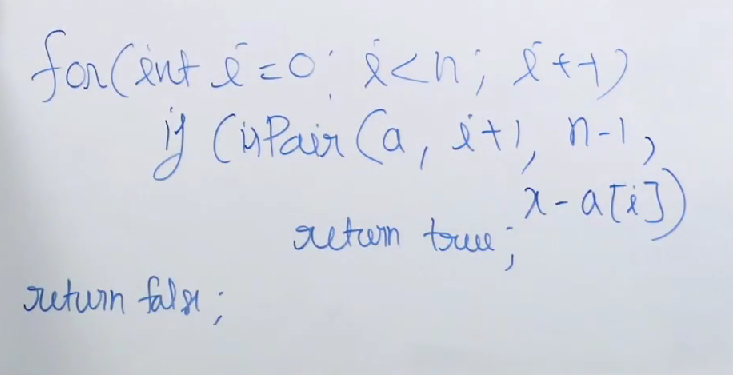 for(int i=0; i<n; i++)
if (isPair(a, i+1, n-1,
x-a[i])
return true;
return false;